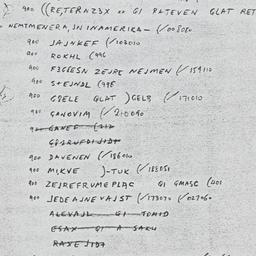 900 ((RE,TERNZ3X 00 GI PATEVEN GLAT RET
NEMTMENERA,IN INAMERIKA— (✓008080
900 JAJNKEF (✓102010
900 ROKHL (996
900 F3GEESN ZEJRE NEJMEN (✓159110
900 S+EJNDL (998
900 GEELE GLAT )GELB (✓171010
900 GANOVIM (✓210090
900 GANEF (212
900 DAVENEN (✓186010
900 MIKVE )-TUK (✓188051
900 ZEJREFRUMEPLAC GI GMASC (401
900 JEDEAJNEVAJST (✓173070 (✓027060
ALEVAJL GI TOMID
ESAX GI A SAKH
RAXE JIDN